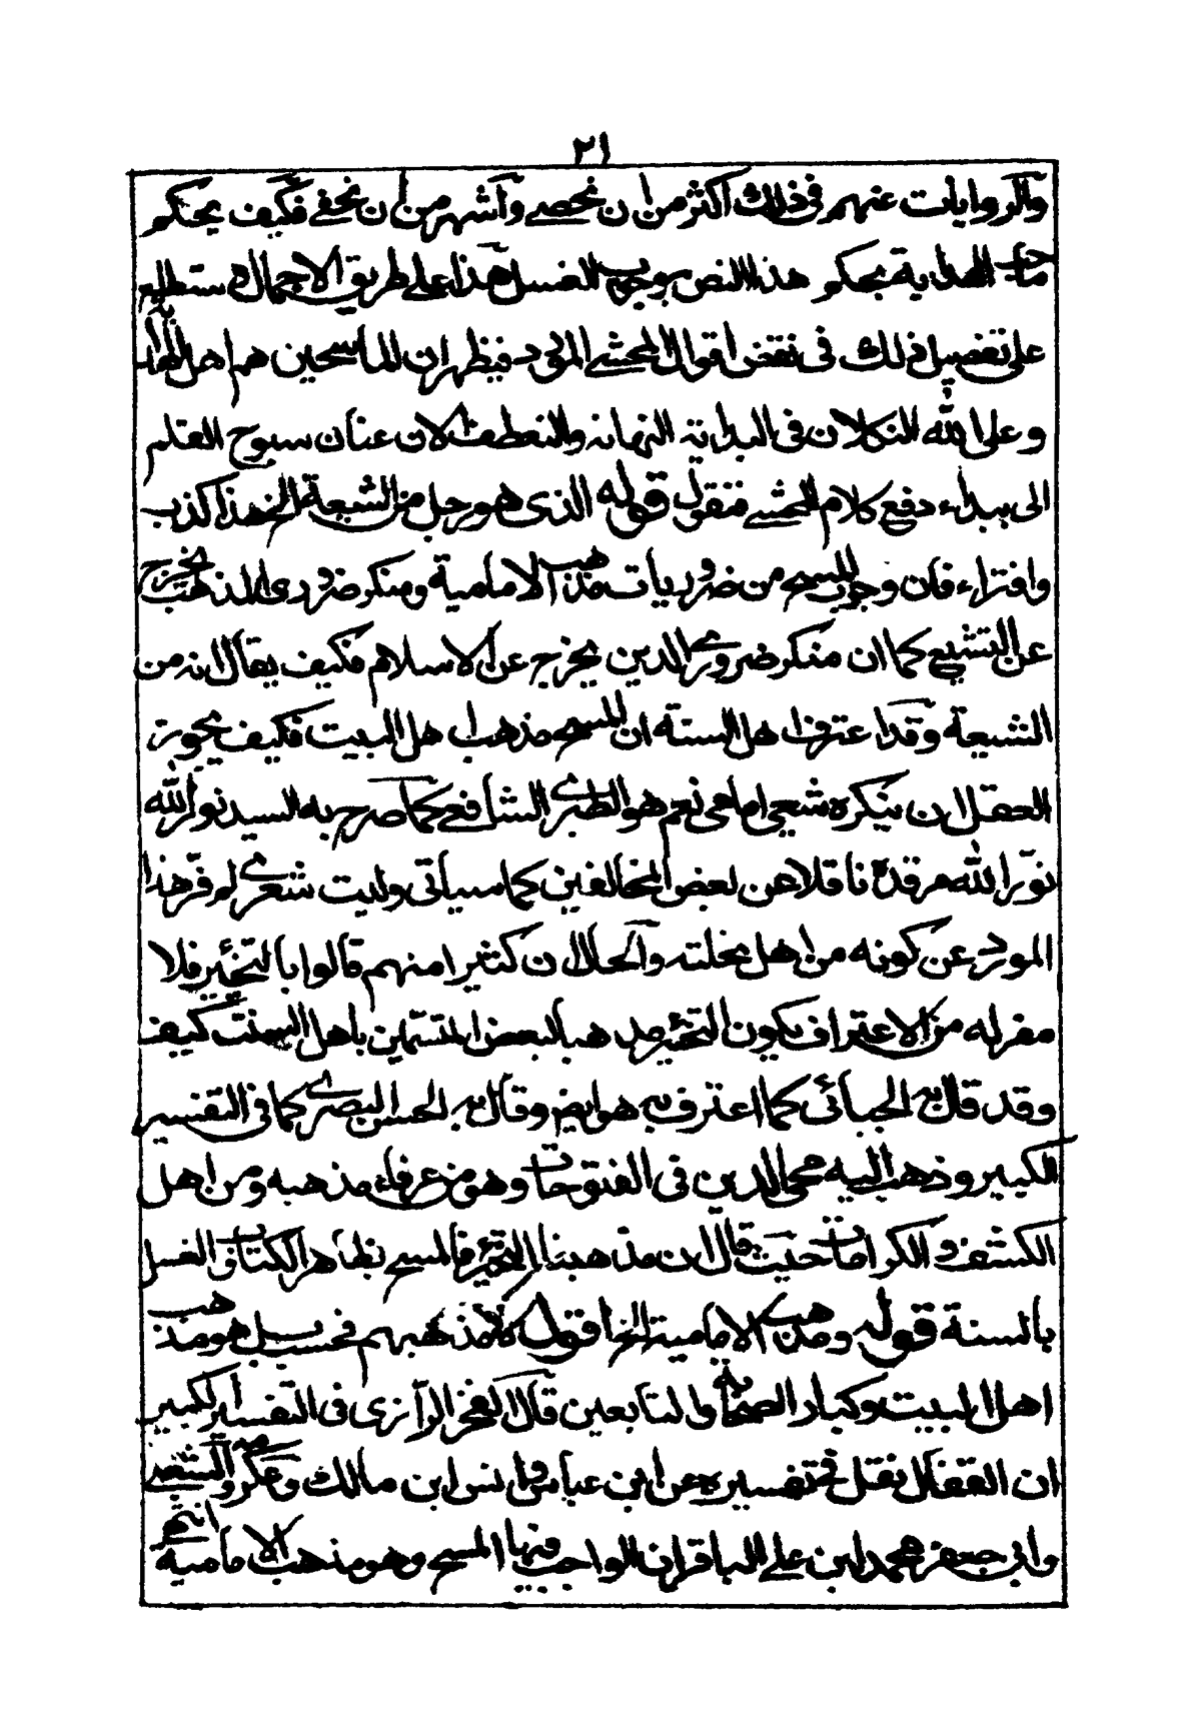 ٢١
والروايات عنهم فى ذلك اكثر من ان تحصى واشهر من ان تخفى فكيف يحكم
صاحب الهداية بحكم هذا النص بوجوب الغسل هذا على طريق الاجمال و ستطلع
على تفصيل ذلك فى نقض اقوال المحشى المورد فيظهر ان الماسحين هم اهل الهداية
و على الله التكلان فى البداية النهاية والنعطف الان عنان سبوح القلم
الى بيداء دفع كلام المحشى فنقول قوله الذى هو رجل من الشيعة الخ هذا كذب
وافتراء فان وجوب المسح من ضروريات مذهب الامامية ومنكر ضرورى المذهب يخرج
عن التشيع كما ان منكر ضرورى الدين يخرج عن الاسلام فكيف يقال انه من
الشيعة وقد اعترف اهل السنة ان المسح مذهب اهل البيت فكيف يجوز
العقل ان ينكره شيعى امامى نعم هو الطبرى الشافعى كما صرح به السيد نور الله
نور الله مرقده ناقلا عن بعض المخالفين كما سياتى وليت شعرى لم فر هذا
المورد عن كونه من اهل نحلته والحال ان كثيرا منهم قالوا بالتخيير فلا
مفر له من الاعتراف بكون التخيير مذهبا لبعض المتسمين باهل السنة كيف
وقد قال به الجبائى كما اعترف به هو ايضا وقال به الحسن البصرى كما فى التفسير
الكبير و ذهب اليه محى الدين فى الفتوحات وهو من عرفاء مذهبه ومن اهل
الكشف و الكرامات حيث قال ان مذهبنا التخيير فالمسح بظاهر الكتاب والغسل
بالسنة قوله ومذهب الامامية الخ اقول لا مذهبهم فحسب بل هو مذهب
اهل البيت وكبار الصحابة والتابعين قال الفخر الرازى فى التفسير الكبير
ان القفال نقل فى تفسيره عن ابن عباس و انس ابن مالك وعكرمه والشعبى
وابى جعفر محمد ابن على الباقر ان الواجب فيها المسح وهو مذهب الامامية انتهى